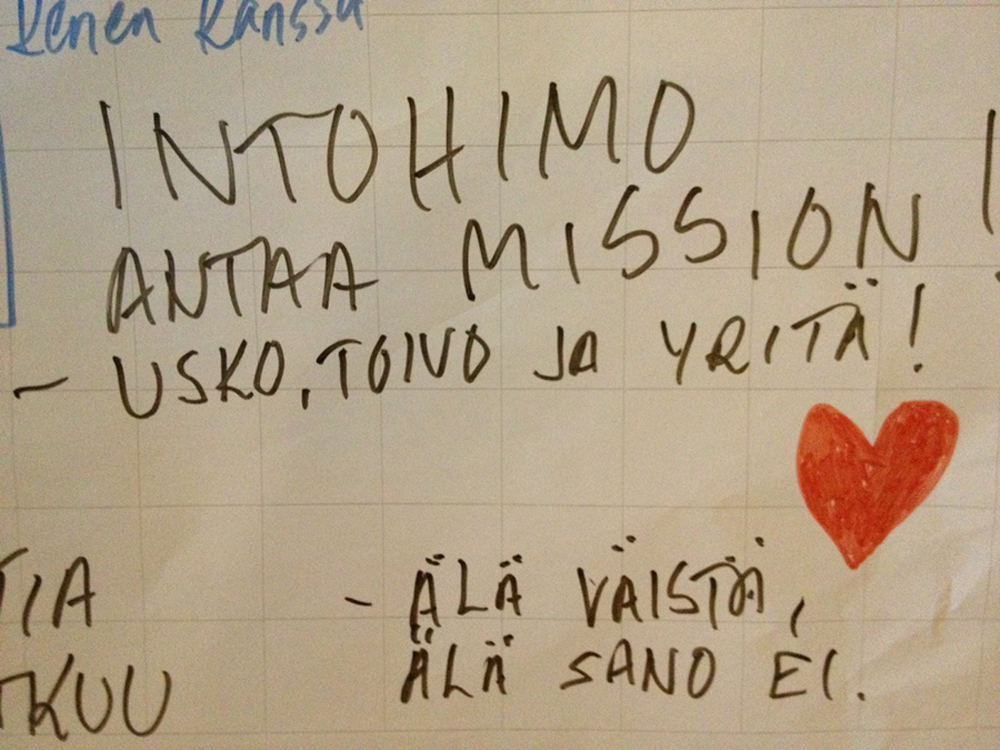 Kenen kanssa
INTOHIMO
ANTAA MISSION
- USKO, TOIVO JA YRITÄ!
TIA - ÄLÄ VÄISTÄ,
TKUU ÄLÄ SANO EI.